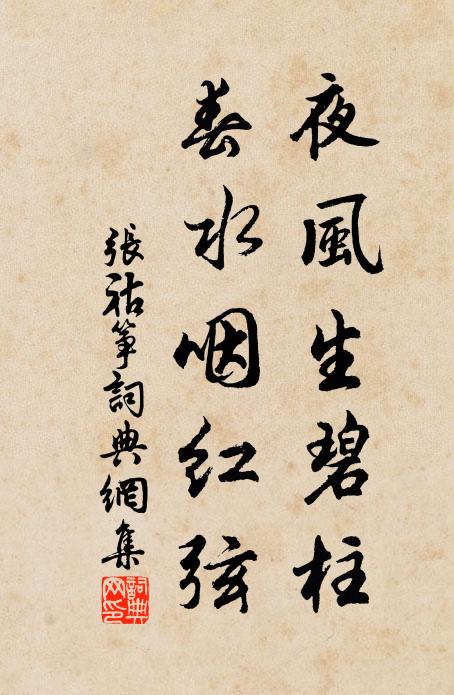 夜風生碧柱
春水咽红弦
張祜箏詞典網集
詞典
网印